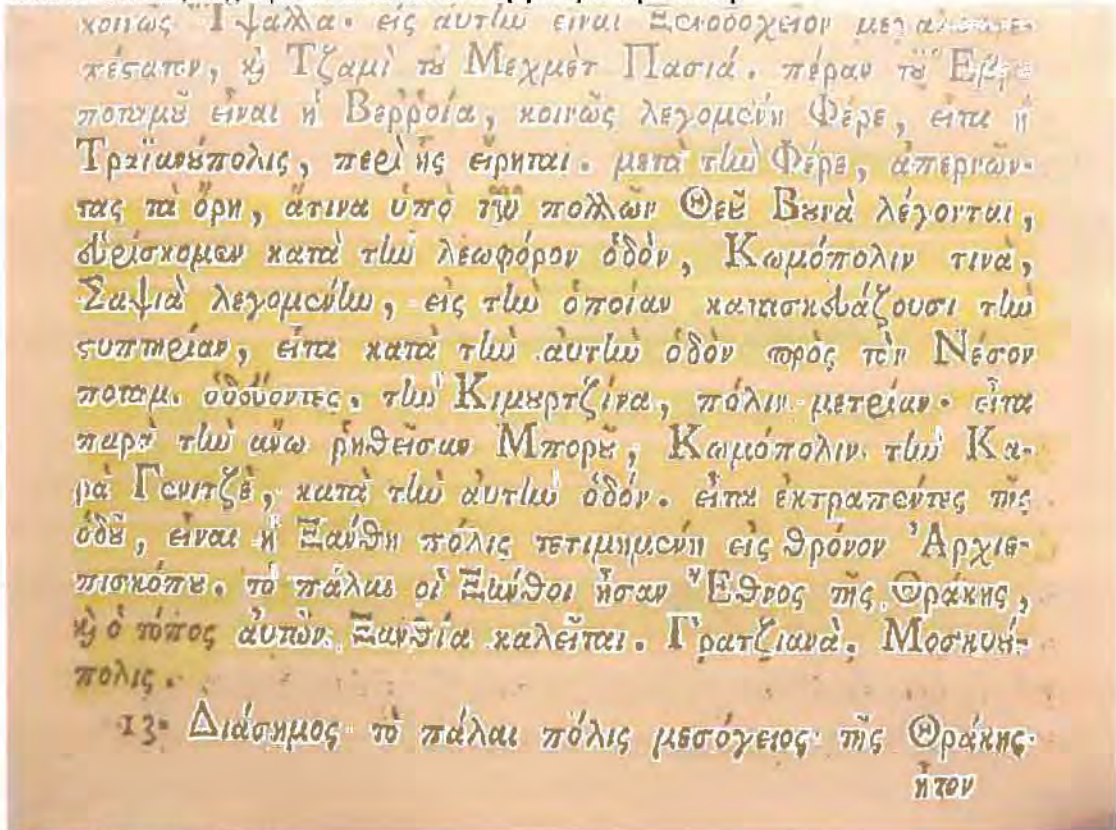 κοινῶς Ἴψαλλα· εἰς αὐτὴν εἶναι Ξενοδοχεῖον
κέσατον, καὶ Τζαμὶ τοῦ Μεχμὲτ Πασιά. πέραν τοῦ Ἕβρου
ποταμοῦ εἶναι ἡ Βερῥοία, κοινῶς λεγομένη Φέρε, εἶτα ἡ
Τραϊανούπολις, περὶ ἧς εἴρηται. μετὰ τὴν Φέρε, ἀπερνῶν-
τας τὰ ὄρη, ἅτινα ὑπὸ τῶν πολλῶν Θεοῦ Βουνὰ λέγονται,
εὑρίσκομεν κατὰ τὴν λεωφόρον ὁδὸν, Κωμόπολιν τινὰ,
Σαψιὰ λεγομένην, εἰς τὴν ὁποίαν κατασκευάζουσι τὴν
στυπτηρίαν, εἶτα κατὰ τὴν αὐτὴν ὁδὸν πρὸς τὸν Νέσον
ποταμ. ὁδεύοντες. τὴν Κιμουρτζίνα, πόλιν μετρίαν. εἶτα
παρὰ τὴν ἄνω ῥηθεῖσαν Μποροῦ, Κωμόπολιν τὴν Κα-
ρὰ Γενιτζὲ, κατὰ τὴν αὐτὴν ὁδόν. εἶτα ἐκτραπέντες τῆς
ὁδοῦ, εἶναι ἡ Ξάνθη πόλις τετιμημένη εἰς θρόνον Ἀρχιε-
πισκόπου. τὸ πάλαι οἱ Ξάνθοι ἦσαν Ἔθνος τῆς Θράκης,
καὶ ὁ τόπος αὐτῶν Ξανθία καλεῖται. Γρατζιανὰ. Μοσκού-
πολις.
13. Διάσημος τὸ πάλαι πόλις μεσόγειος τῆς Θράκης·
ἦτον